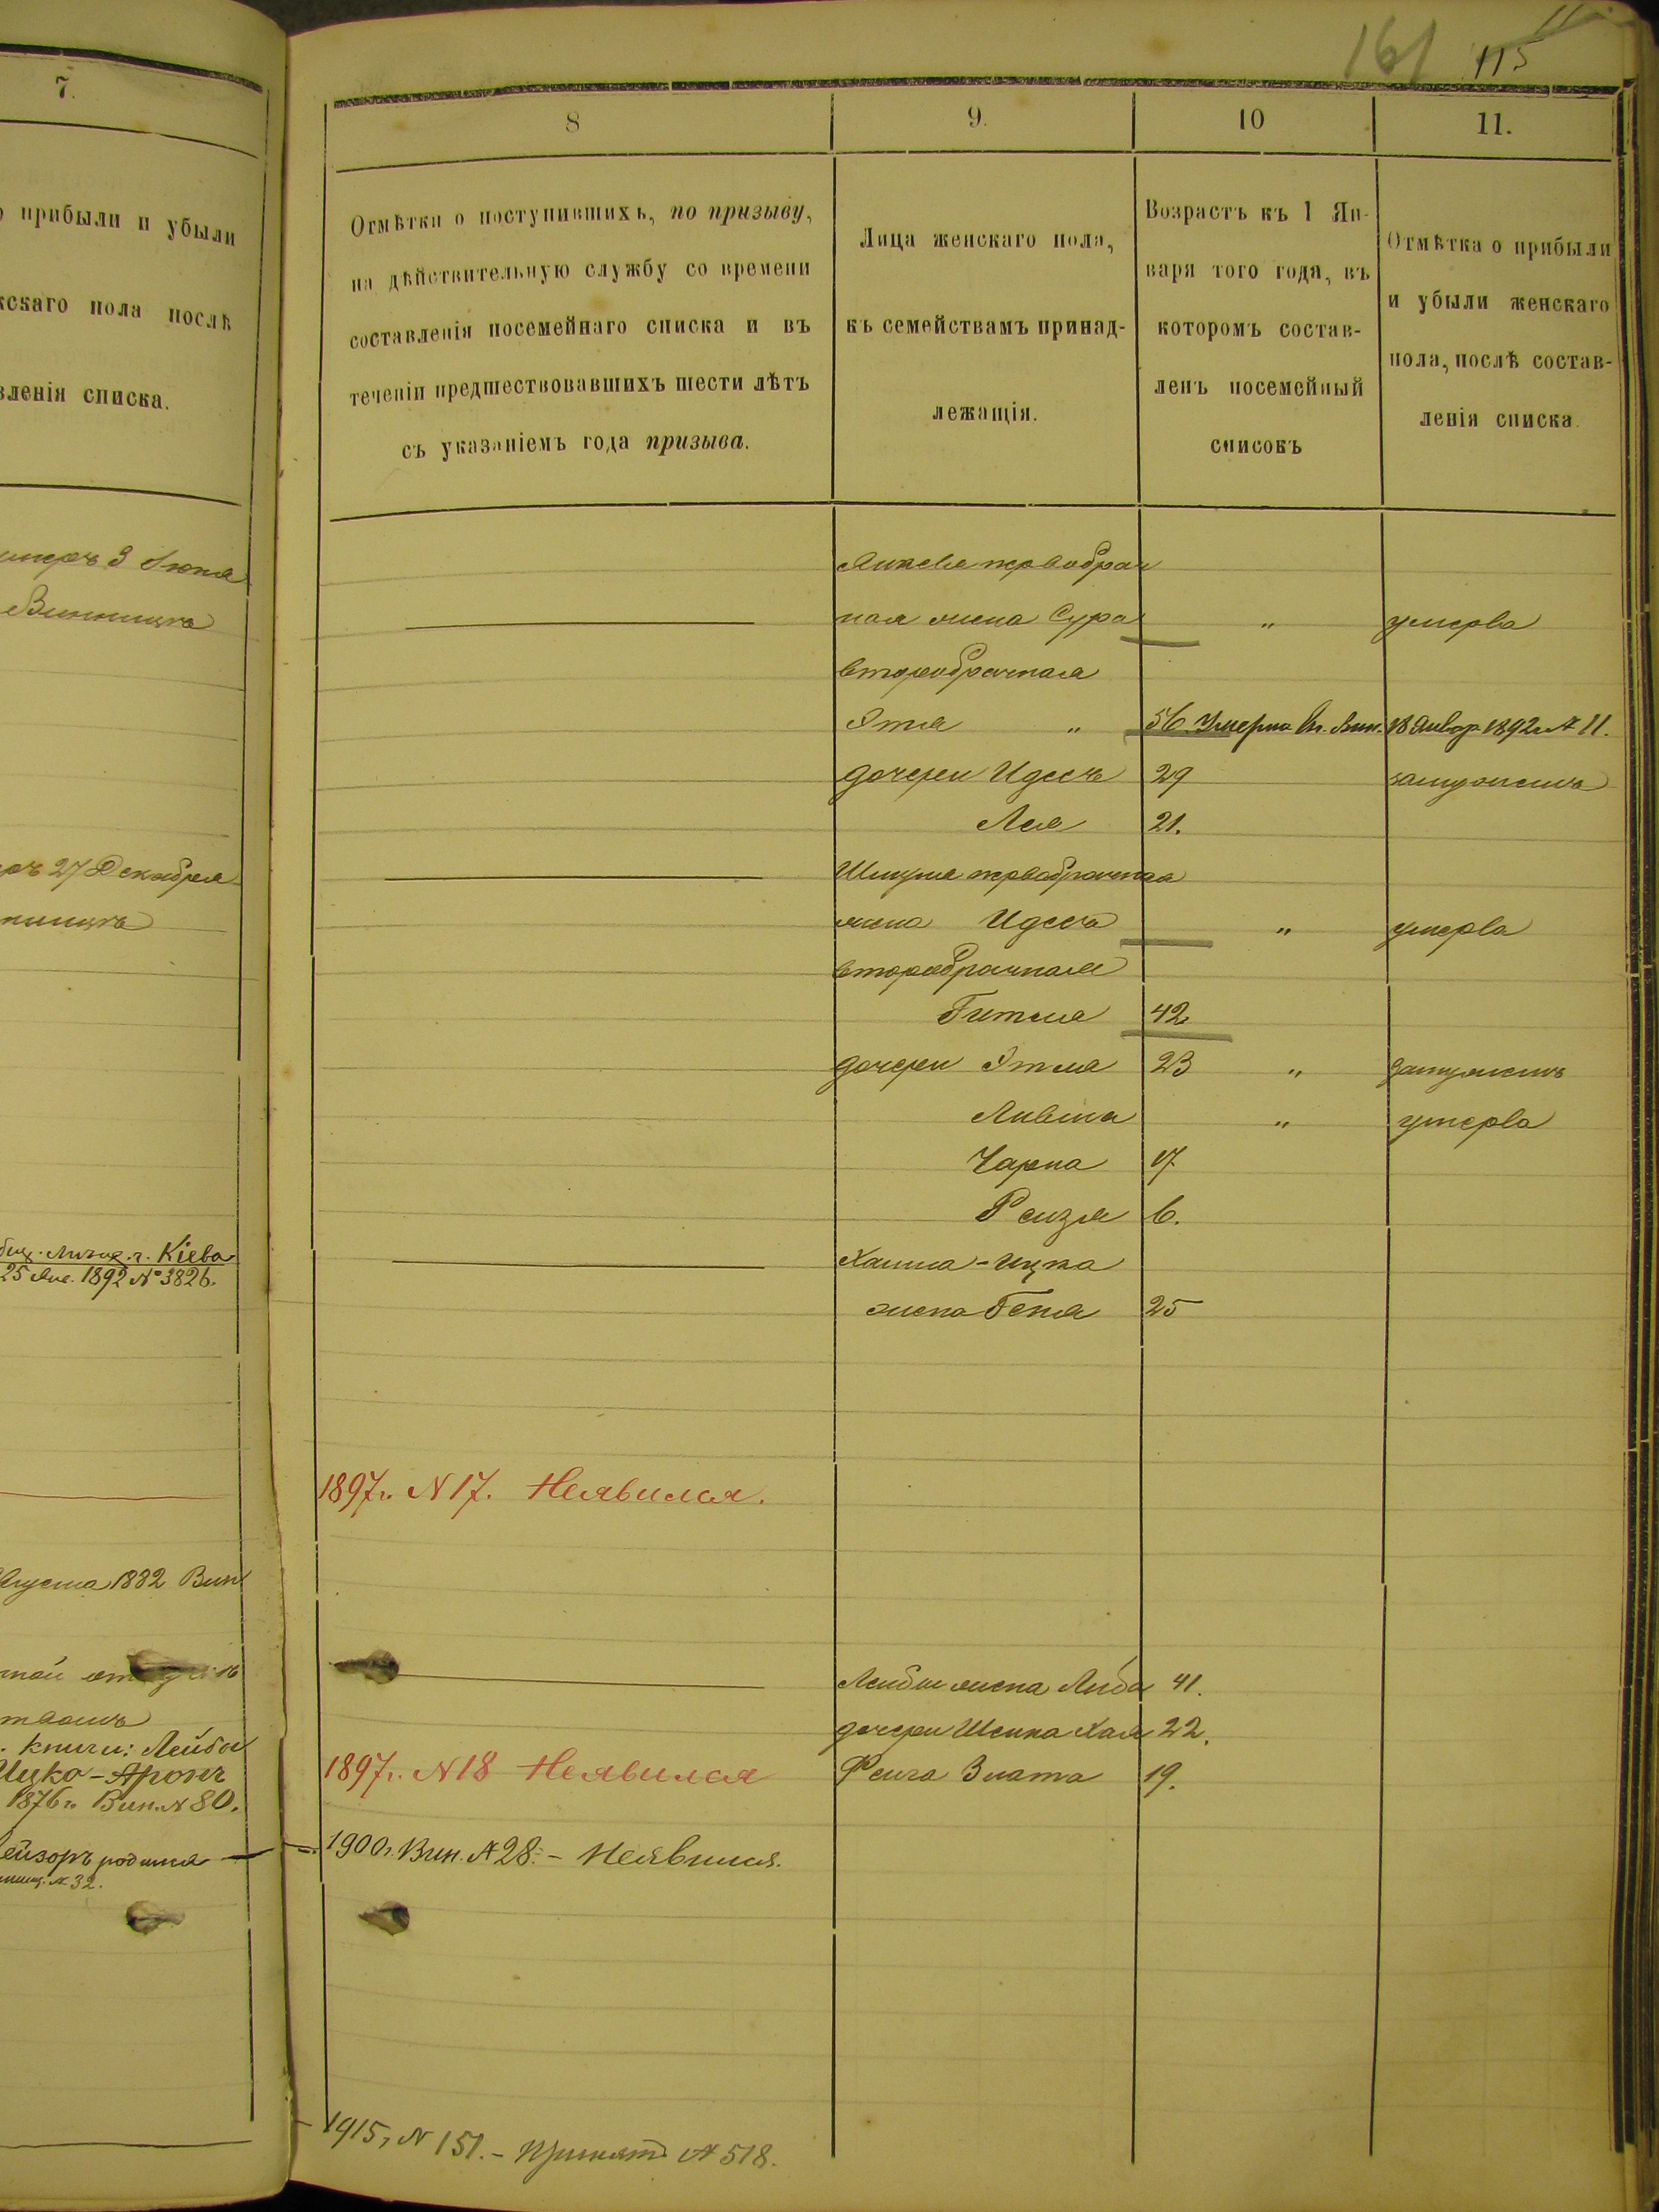 7.
прибыли и убыли
скаго пола послѣ
вленія списка.
умеръ 3 Іюня
Винница
27 Декабря
г. Кіева
25 Янв. 1892 № 3826.
Августа 1882 Вин
книги: Лейбы
Ицко-Аронъ
1876 г. Вин. № 80.
ейзоръ родился
№ 32.
161 115
8
9.
10
11.
Отмѣтки о поступившихъ, по призыву,
на дѣйствительную службу со времени
составленія посемейнаго списка и въ
теченіи предшествовавшихъ шести лѣтъ
съ указаніемъ года призыва.
Лица женскаго пола,
къ семействамъ принад-
лежащія.
Возрастъ къ 1 Ян-
варя того года, въ
которомъ состав-
ленъ посемейный
списокъ
Отмѣтка о прибыли
и убыли женскаго
пола, послѣ состав-
ленія списка.
Янкеля первобрач
ная жена Сура " умерла
второбрачная
Этля " 56. Умерла Вин. 18 Январ 1892 г. № 11.
дочери Идесъ 29 замужемъ
Лея 21.
Шмуля первобрачная
жена Идесъ " умерла
второбрачная
Гитля 42
дочери Этля 23 " замужемъ
" умерла
Чарна 17.
Рейзя 6.
Хаима-Ицка
жена Геня 25
1897 г. № 17. Неявился.
Лейбы жена Либа 41.
дочери Шейна Хая 22.
1897 г. № 18 Неявился Фейга Злата 19.
1900 г. Вин. № 28. - Неявился.
1915 г. № 151. - Принятъ № 518.